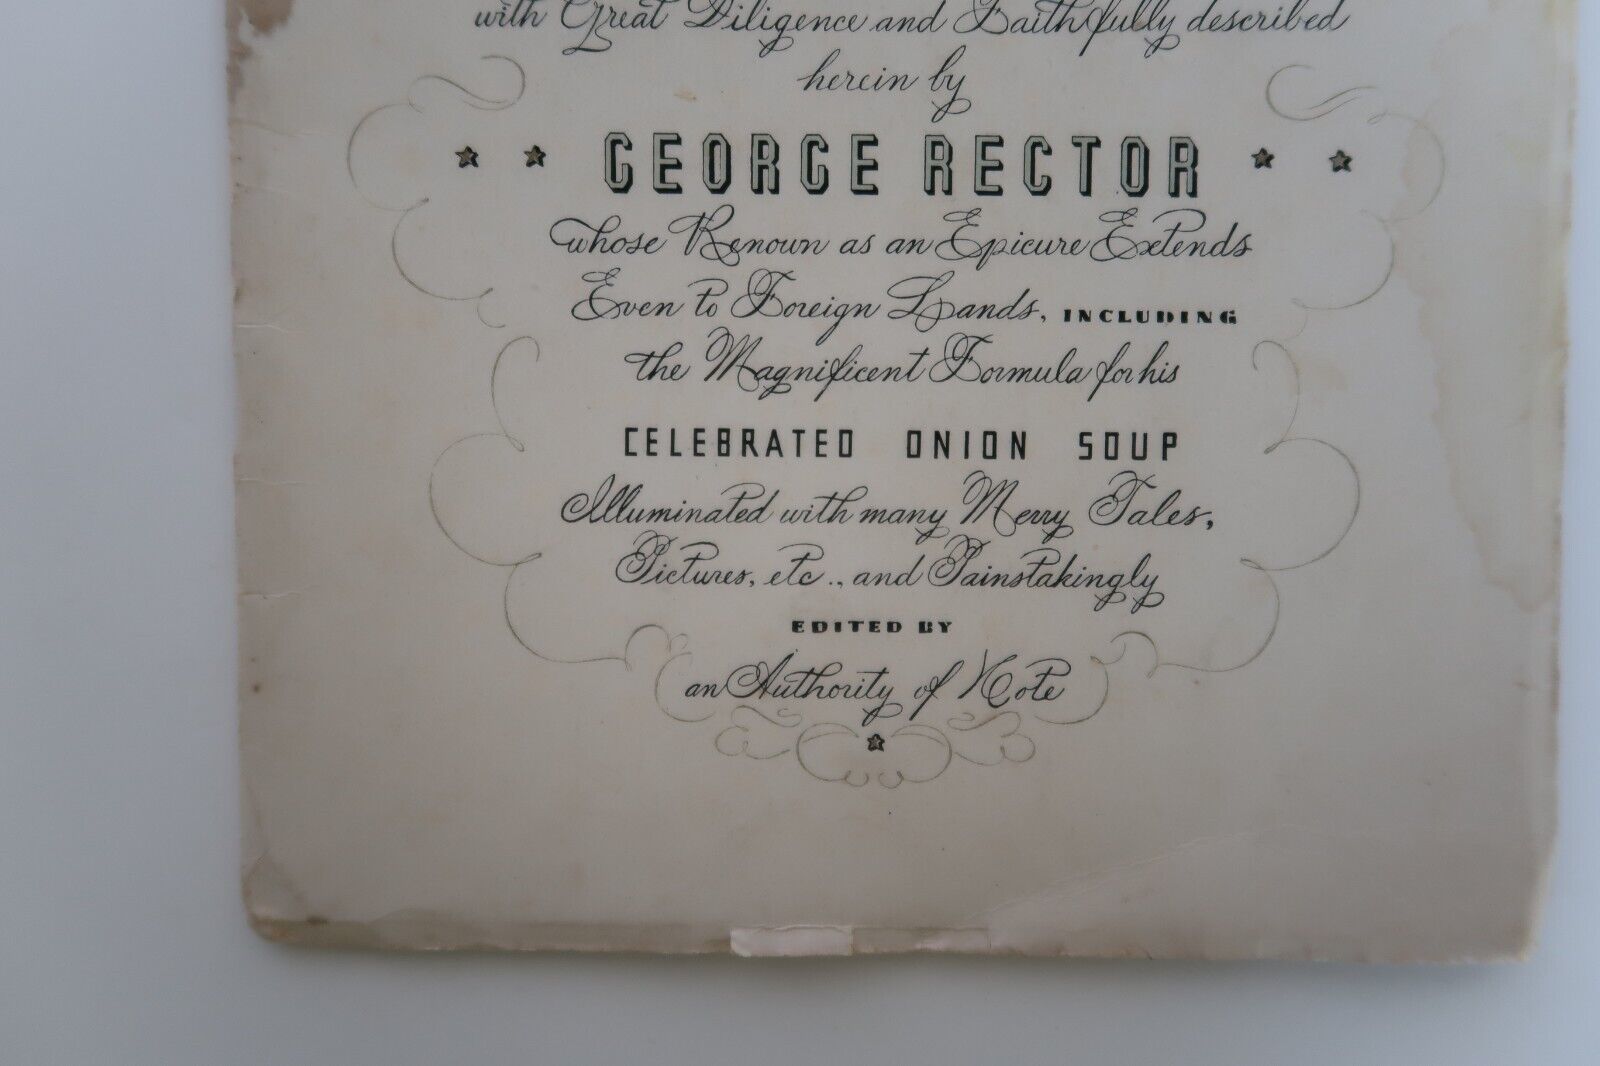 with Great Diligence and Faithfully described
herein by
GEORGE RECTOR
whose Renown as an Epicure Extends
Even to Foreign Lands, INCLUDING
the Magnificent Formula for his
CELEBRATED ONION SOUP
Illuminated with many Merry Tales,
Pictures, etc., and Painstakingly
EDITED BY
an Authority of Note